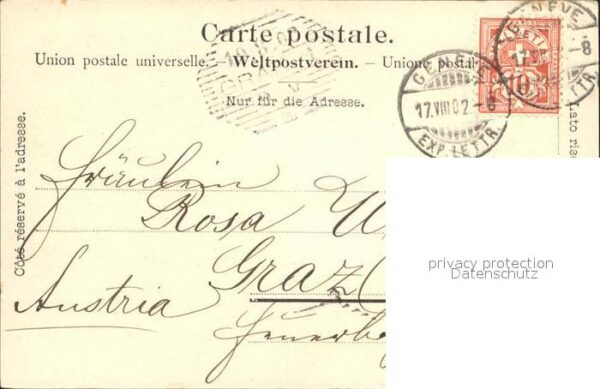 Carte postale.
Union postale universelle. – Weltpostverein. – Unione postal
Nur für die Adresse.
Côté réservé à l'adresse.
GENÈVE
17.VIII.02.-8
EXP. LETTR.
NÈVE
-8
TTR.
10
GRAZ
Lato ris
Fräulein
Rosa
Graz
Austria
privacy protection
Datenschutz